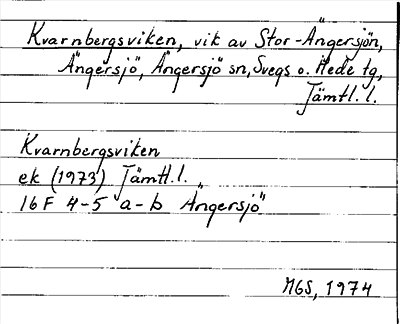 Kvarnbergsviken, vik av Stor-Ängersjön,
Ängersjö, Ängersjö sn, Svegs o. Hede tg,
Jämtl. l.
Kvarnbergsviken
ek (1973) Jämtl. l.
16F 4-5 a-b Ängersjö
MGS, 1974